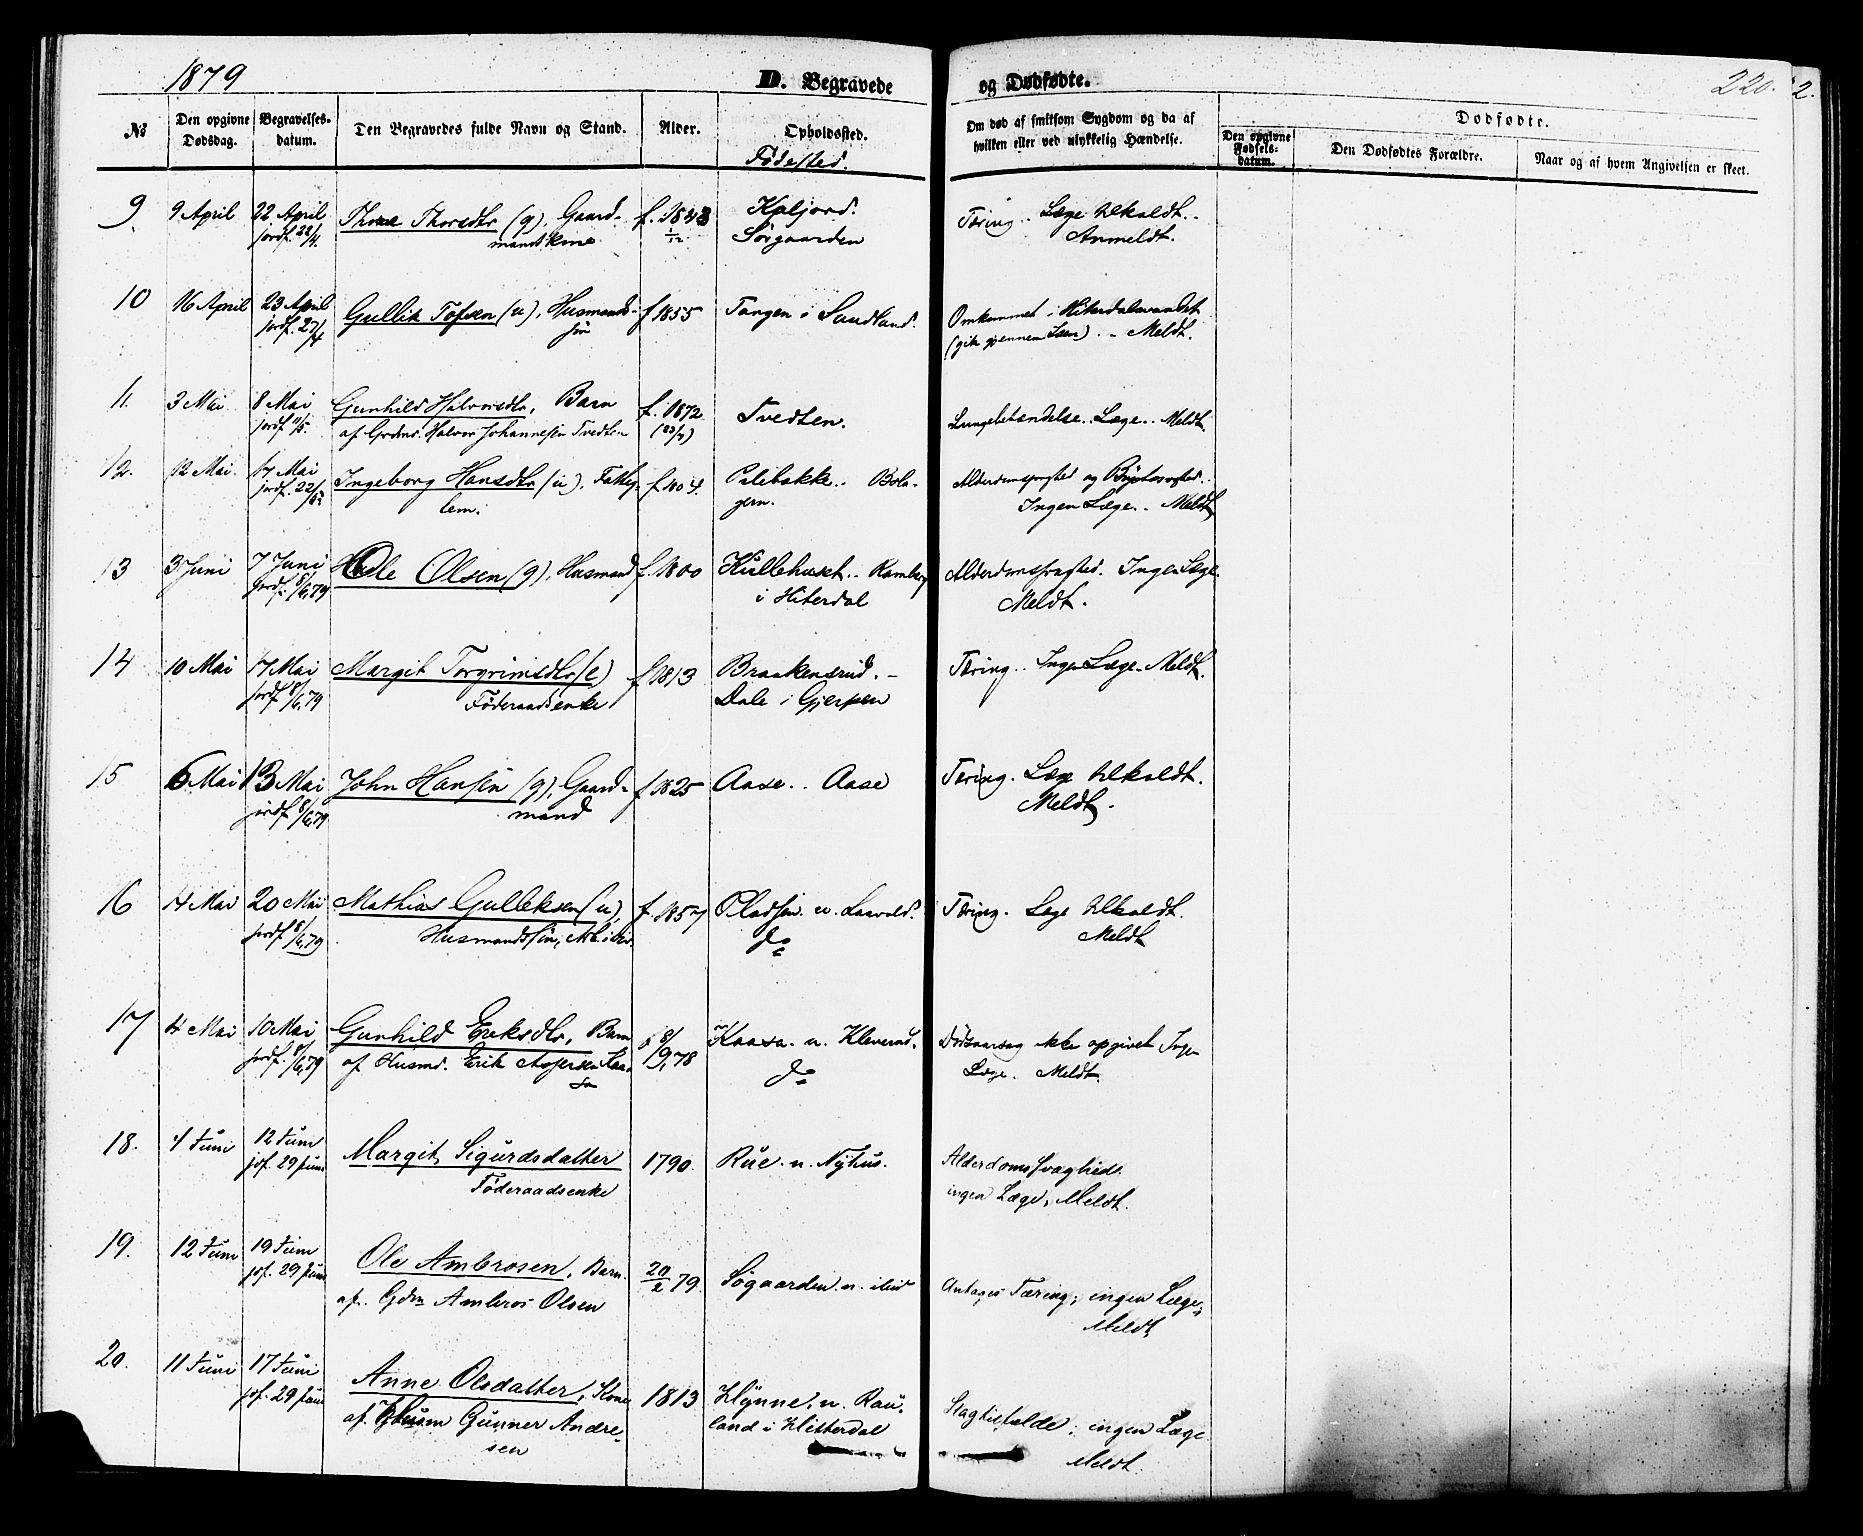 1879
D. Begravede og Dødfødte.
220.
2.
№
Den opgivne Dødsdag.
Begravelses-datum.
Den Begravedes fulde Navn og Stand.
Alder.
Opholdssted.
Fødested.
Om død af smitsom Sygdom og da af hvilken eller ved ulykkelig Hændelse.
Dødfødte.
Den opgivne Fødsels-datum.
Den Dødfødtes Forældre.
Naar og af hvem Angivelsen er skeet.
9. 9 April 22 April Thorsdtr (g), Gaard- f. Kaljord. Tæring. Læge tilkaldt.
jordf. 22/4. mandskone 1/12 Sørgaarden Anmeldt.
10 16 April 23 April Gullik Tofsen (u), Husmands- f 1855 Tangen i Sandland. Omkommet i Hiterdalsvandet
jordf. 27/4 søn (gik gjennem Isen). - Meldt.
11. 3 Mai 8 Mai Gunhild Halvorsdtr, Barn f. 1872 Tvedten. Lungebetændelse. Læge.. Meldt.
jordf 11/5. af Grdmd. Halvor Johannesen Tvedten (23/7)
12. 12 Mai. 17 Mai Ingeborg Hansdtr (u), Fattig- f 1804. Bola- Alderdomssvaghed og
jordf. 22/5 lem. gern. Ingen Læge.. Meldt
13 3 Juni 7 Juni Olsen (g), Husmand f. 1800 Kullehuset.. Ramberg Alderdomssvaghed. Ingen Læge.
jordf. 8/6,79 i Hiterdal Meldt.
14 10 Mai 17 Mai Margit Torgrimsdtr (e) f 1813 Braakensrud. - Tæring.. Ingen Læge. Meldt.
jordf 8/6,79 Føderaadsenke Dale i Gjerpen
15 6 Mai 13 Mai John Hansen (g), Gaard- f 1825 Aase.. Aase Tæring. Læge tilkaldt.
jordf 8/6,79 mand Meldt.
16 14 Mai 20 Mai Mathias Gulleksen (u), f. 1857 Pladsen u. Tæring. Læge tilkaldt.
jordf 8/6,79 Husmandssøn, do Meldt
17 4 Mai 10 Mai Gunhild Eriksdtr, Barn f 8/9,78 Kaasa. u. Kleverud. Dødsaarsag ikke opgivet Ingen
jordf. 8/6,79 af Husmd. Erik Aspersen Kaa- do Læge. Meldt.
sa
18. 4 Juni 12 Juni Margit Sigurdsdatter 1790. Rue. u. Nyhus. Alderdomssvaghed.
jof. 29 Juni Føderaadsenke ingen Læge, Meldt.
19. 12 Juni 19 Juni Ole Ambrosen, Barn 20/2 79. Søgaarden. u. Antages Tæring; ingen Læge;
jof. 29 Juni af. Gdm Ambros Olsen Meldt
20. 11 Juni 17 Juni Anne Olsdatter, Kone 1813 Klynne, u. Rau- Slagtilfælde; ingen Læge.
jof. 29 Juni af Gunner Andre- land i Hitterdal Meldt.
sen